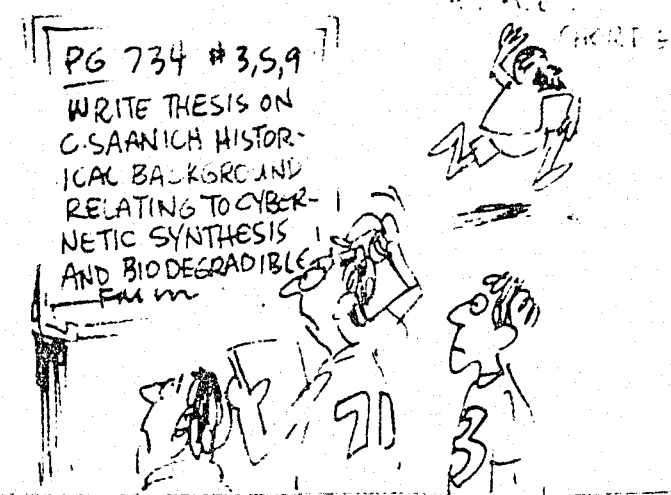 PG 734 # 3,5,9
WRITE THESIS ON
C.SAANICH HISTOR-
ICAL BACKGROUND
RELATING TO CYBER-
NETIC SYNTHESIS
AND BIODEGRADIBLE
71
3